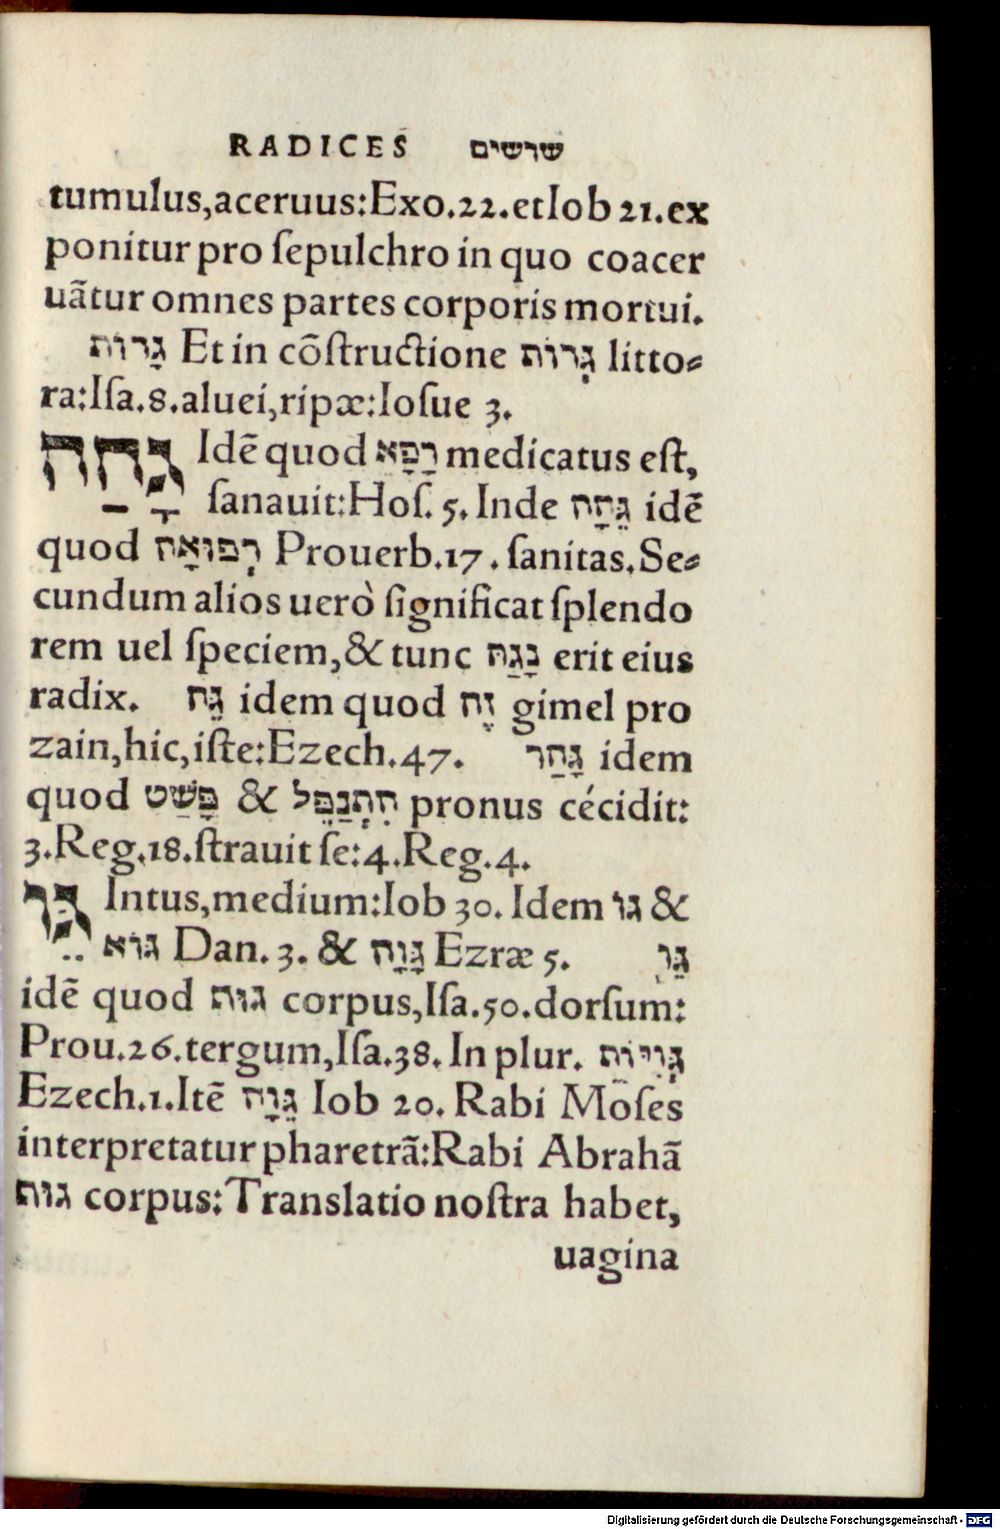 RADICES שרשים
tumulus,aceruus:Exo.22.etIob 21.ex
ponitur pro ſepulchro in quo coacer
uãtur omnes partes corporis mortui.
גָרוֹת Et in cõſtructione גְרוֹת litto⸗
ra:Iſa.8.aluei,ripæ:Ioſue 3.
גָהַה Idẽ quod רָפָא medicatus eſt,
ſanauit:Hoſ. 5. Inde גֵהָה idẽ
quod רְפוּאָה Prouerb.17. ſanitas.Se⸗
cundum alios uerò ſignificat ſplendo
rem uel ſpeciem,& tunc נָגַהּ erit eius
radix. גֵה idem quod זֶה gimel pro
zain,hic,iſte:Ezech.47. גָהַר idem
quod פָּשַׁט & הִתְנַפֵּל pronus cécidit:
3.Reg.18.ſtrauit ſe:4.Reg.4.
גֵּו Intus,medium:Iob 30. Idem גוֹ &
גוֹא Dan. 3. & גַּוָּה Ezræ 5. גֵּו
idẽ quod גוּת corpus,Iſa.50.dorſum:
Prou.26.tergum,Iſa.38. In plur. גְוִיּוֹת
Ezech.1.Itẽ גֵּוָה Iob 20. Rabi Moſes
interpretatur pharetrã:Rabi Abrahã
גוּת corpus:Translatio noſtra habet,
uagina
Digitalisierung gefördert durch die Deutsche Forschungsgemeinschaft - DFG